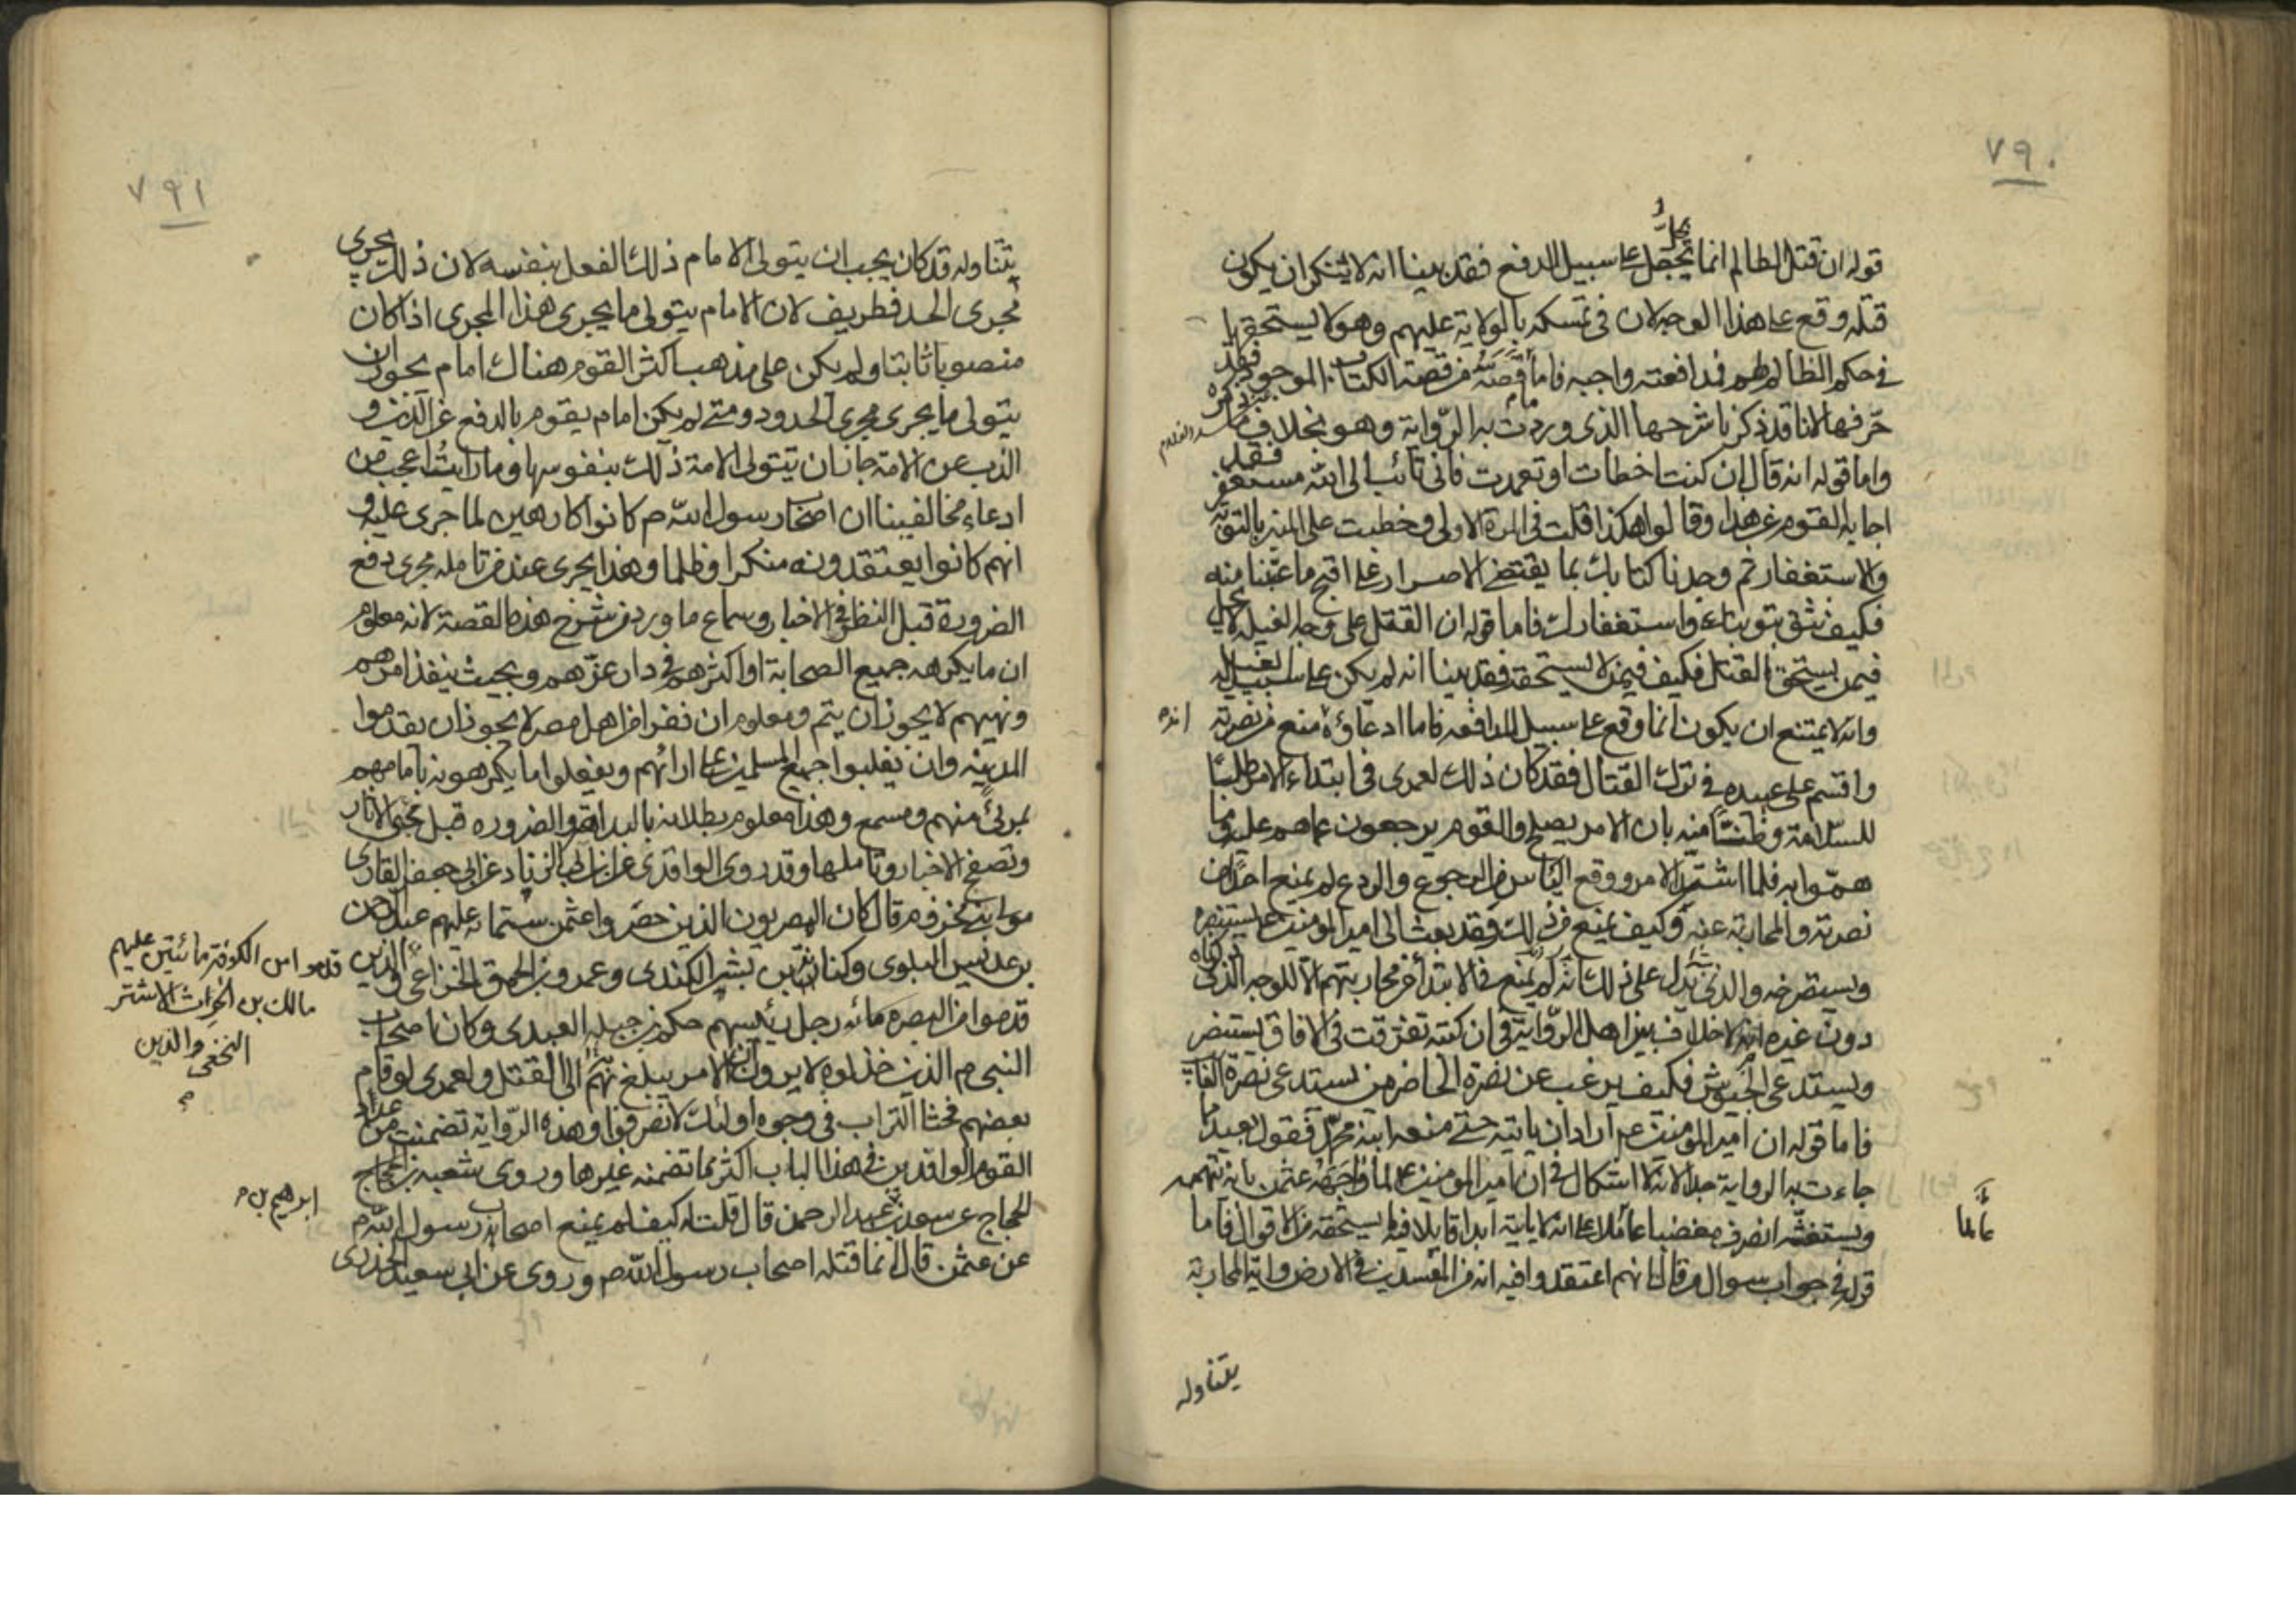 ٧٩٠
قوله ان قتل الظالم انما يحل على سبيل الدفع فقد بينا انه لا ينكر ان يكون
قتله وقع على هذا الوجه لان في تمسكه بالولاية عليهم وهو لا يستحقها
في حكم الظالم لهم فمدافعته واجبه فاما قصته من قصة الكتاب الموجود فقد
حرفها لانا قد ذكرنا شرحها الذي وردت به الرواية وهو بخلاف ما ذكره
واما قوله انه قال ان كنت اخطات او تعمدت فاني تائب الى الله مستغفر فقد
اجابه القوم عن هذا وقالوا هكذا قلت في المرة الاولى وخطبت على المنبر بالتوبة
والاستغفار ثم وجدنا كتابك بما يقتضي الاصرار على اقبح ما عتبنا منه
فكيف نثق بتوبتك واستغفارك فاما قوله ان القتل على وجه الغيله لا يحل
فيمن يستحق القتل فكيف فيمن لا يستحقه فقد بينا انه لم يكن على سبيل الغيله
وانه لا يمتنع ان يكون انما وقع على سبيل المدافعه فاما ادعاؤه منع من نصرته
انه
واقسم على عبيده في ترك القتال فقد كان ذلك لعمرى في ابتداء الامر طلبا
للسلامة وظنا منه بان الامر يصلح والقوم يرجعون عما هم عليه وما
هموا به فلما اشتد الامر ووقع الياس من الرجوع والردع لم يمنع احدا من
نصرته والمحاربة عنه وكيف يمنع من ذلك وقد بعث الى امير المؤمنين ع يستنصره
ويستصرخه والذي يدل على ذلك انه لم يمنع في الابتداء من محاربتهم الا للوجه الذي ذكرناه
دون غيره انه لا خلاف بين اهل الرواية في ان كتبه تفرقت في الافاق يستنصر
ويستدعى الجيوش فكيف يرغب عن نصرة الحاضر من يستدعى نصرة الغائب
فاما قوله ان امير المؤمنين ع اراد ان ياتيه حتى منعه ابنه محمد فقول بعيد مما
جاءت به الرواية جدا لانه لا اشكال في ان امير المؤمنين ع لما واجهه عثمن بانه يتهمه
ويستغشه انصرف مغضبا عاملا على انه لا ياتيه ابدا قايلا فيه ما يستحقه من الاقوال فاما
قوله في جواب سوال من قال انهم اعتقدوا فيه انه من المفسدين في الارض وانه المحاربة
يتناوله
٧٩١
يتناوله قد كان يجب ان يتولى الامام ذلك الفعل بنفسه لان ذلك يجرى
مجرى الحد فطريف لان الامام يتولى ما يجرى هذا المجرى اذا كان
منصوبا ثابتا ولم يكن على مذهب اكثر القوم هناك امام يجوز ان
يتولى ما يجرى مجرى الحدود ومتى لم يكن امام يقوم بالدفع عن الدين و
الذب عن الامة جاز ان يتولى الامة ذلك بنفوسها وما رايت اعجب من
ادعاء مخالفينا ان اصحاب رسول الله ص كانوا كارهين لما جرى عليه و
انهم كانوا يعتقدونه منكرا وظلما وهذا يجرى عند من تامله مجرى دفع
الضرورة قبل النظر في الاخبار وسماع ما ورد من شرح هذه القصة لانه معلوم
ان ما يكرهه جميع الصحابة او اكثرهم في دار عزهم وبحيث ينفذ امرهم
ونهيهم لا يجوز ان يتم ومعلوم ان نفرا من اهل مصر لا يجوز ان يقدموا
المدينه وان يغلبوا جميع المسلمين على ارائهم ويفعلوا ما يكرهونه بامامهم
بمرئ منهم ومسمع وهذا معلوم بطلانه بالبداهة والضروره قبل مجئ الاثار
وتصفح الاخبار وتاملها وقد روى الواقدى عن ابن ابى الزناد عن ابى جعفر القارى
مولى بنى مخزوم قال كان المصريون الذين حصروا عثمن ستمائه عليهم عبد الرحمن
بن عديس البلوى وكنانة بن بشر الكندى وعمرو بن الحمق الخزاعى والذين
قدموا من الكوفة مائتين عليهم
مالك بن الحرث الاشتر
النخعى والذين
قدموا من البصره مائه رجل رئيسهم حكيم بن جبله العبدى وكان اصحاب
النبى ص الذين خذلوه لا يرون ان الامر يبلغ بهم الى القتل ولعمرى لو قام
بعضهم فحثا التراب في وجوه اولئك لانصرفوا وهذه الرواية تضمنت من عداد
القوم الوافدين في هذا الباب اكثر مما تضمنه غيرها وروى شعبه بن الحجاج
ابرهيم بن
الحجاج عن سعد بن عبد الرحمن قال قلت له كيف لم يمنع اصحاب رسول الله ص
عن عثمن قال انما قتله اصحاب رسول الله ص وروى عن ابى سعيد الخدرى